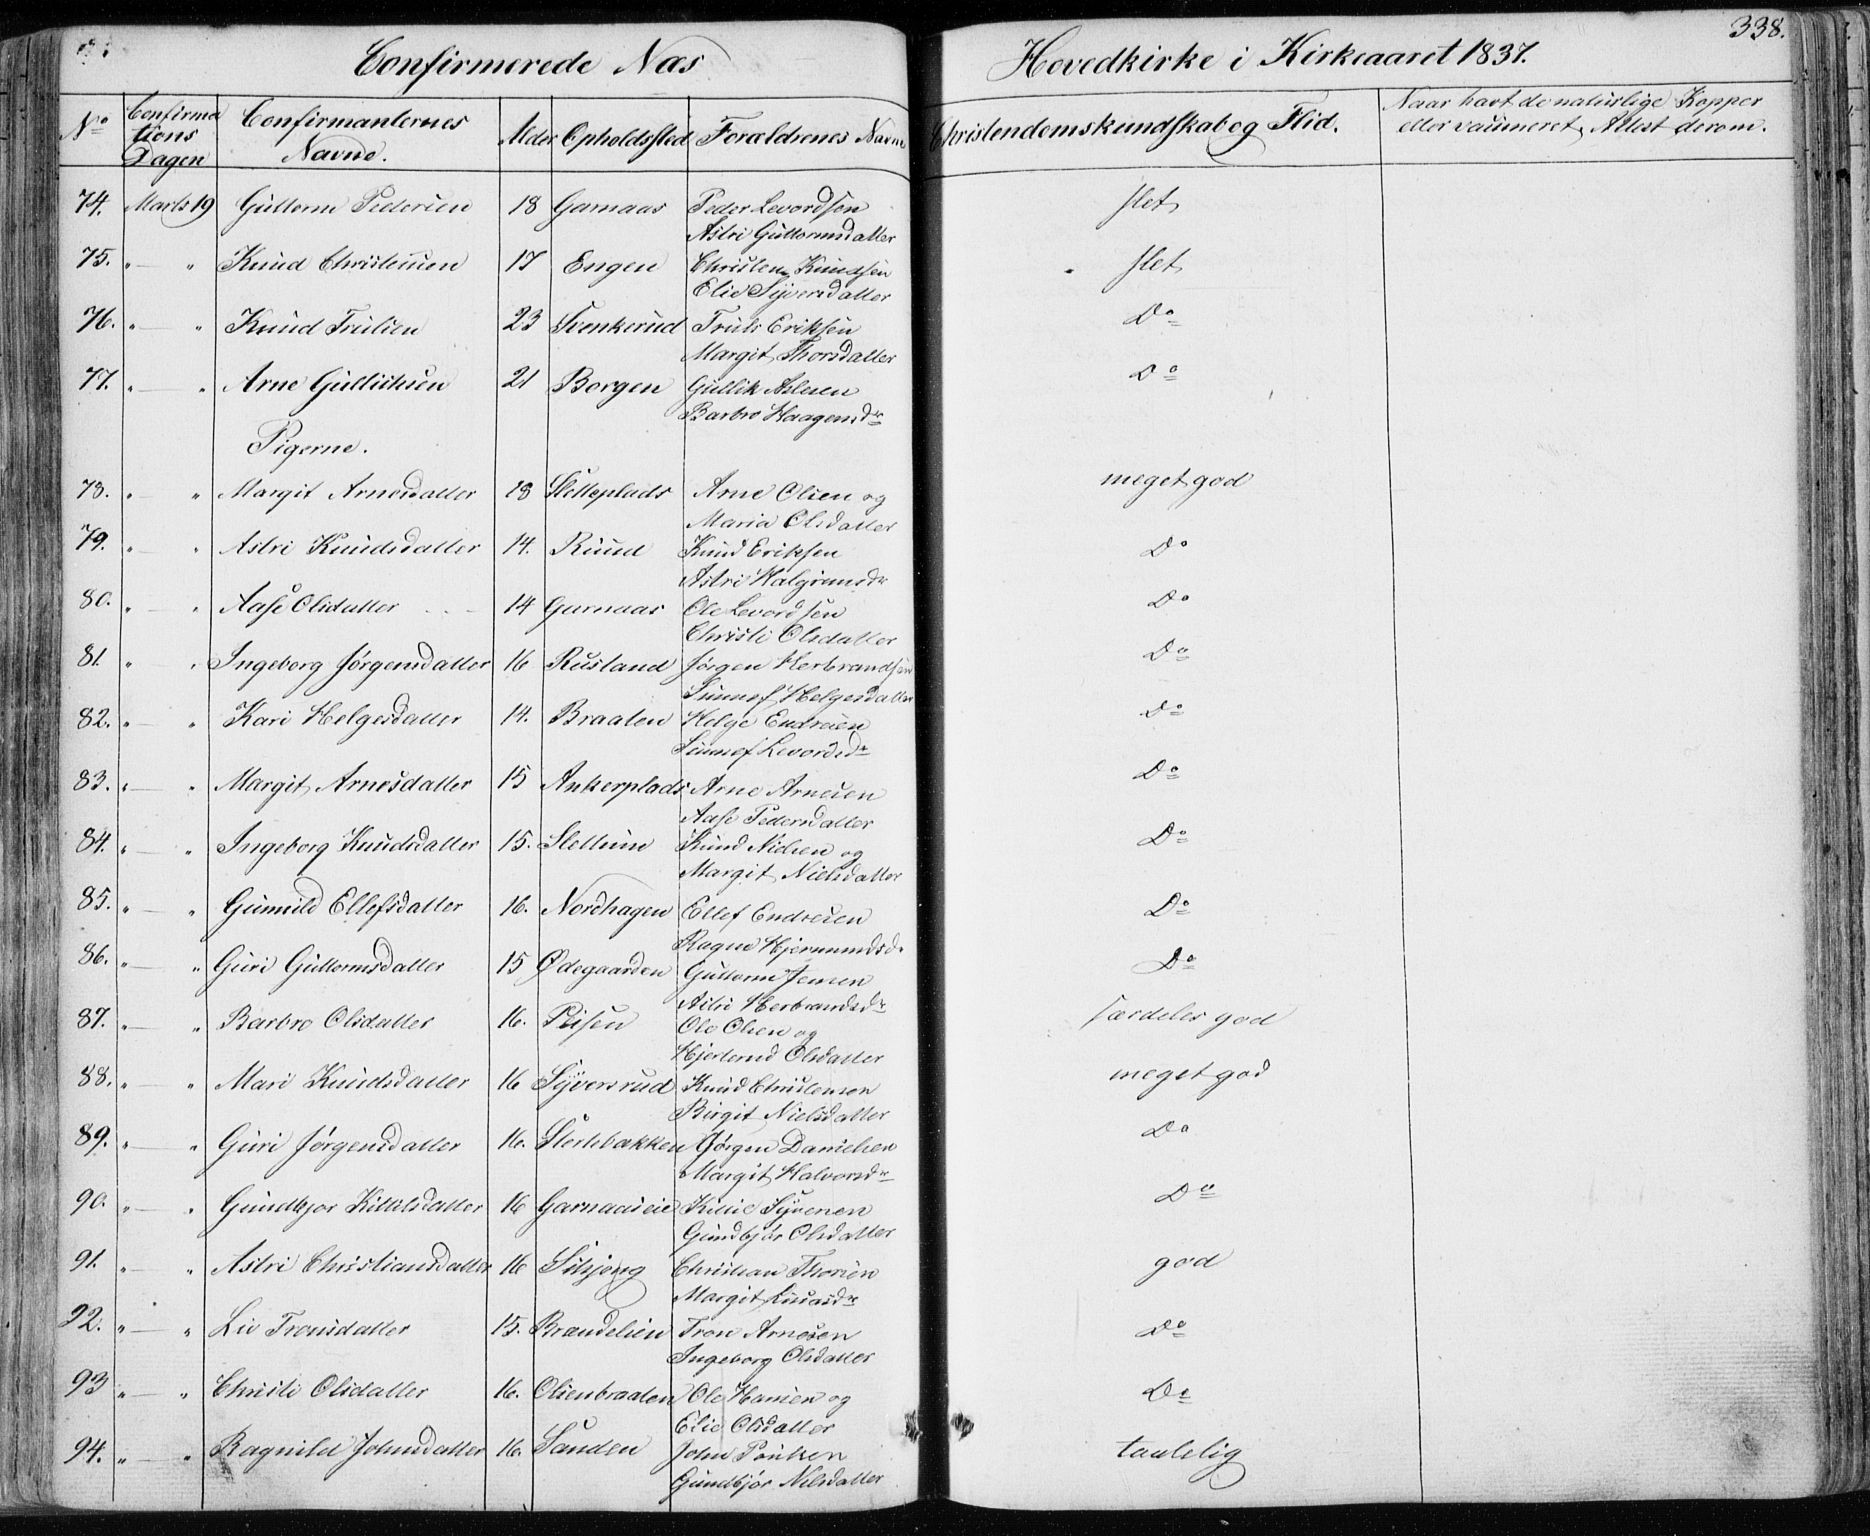 338.
Confirmerede Næs Hovedkirke i Kirkeaaret 1837.
No Confirmations Dagen Confirmanternes Navne. Alder Opholdssted Forældrenes Navne Christendomskundskab og Flid. Naar havt de naturlige Kopper eller vaccineret, Attest derom.
74. Marts 19 Guttorm Pedersen 18 Garnaas Peder Levordsen slet
Astri Guttormsdatter
75. " — " Knud Christensen 17 Engen Christen Knudsen slet
Elie Syversdatter
76. " — " Knud Trulsen 23 Svenkerud Truls Eriksen Do
Margit Thorsdatter
77. " — " Arne Gulliksen 21 Borgen Gullik Aslesen Do
Barbro Haagensdr
Pigerne.
78. " — " Margit Arnesdatter 18 Sletteplads Arne Olsen og meget god
Maria Olsdatter
79. " — " Astri Knudsdatter 14. Ruud Knud Eriksen Do
Astri Halgrimsdr
80. " — " Aase Olsdatter 14 Garnaas Ole Levordsen Do
Christi Olsdatter
81. " — " Ingeborg Jørgensdatter 16 Rustand Jørgen Herbrandsen Do
Sunnef Helgesdatter
82. " — " Kari Helgesdatter 14. Braaten Helge Endresen Do
Sunnef Levordsdr
83. " — " Margit Arnesdatter 15 Ankerplads Arne Arnesen Do
Aase Pedersdatter
84. " — " Ingeborg Knudsdatter 15. Slettum Knud Nielsen og Do
Margit Nielsdatter
85. " — " Gunnild Ellefsdatter 16. Nordhagen Ellef Endresen Do
Ragne Hjermundsd.
86. " — " Guri Guttormsdatter 15 Ødegaarden Guttorm Jensen Do
Astri Herbrandsdr
87. " — " Barbro Olsdatter 16. Peisen Ole Olsen og særdeles god
Hjertrud Olsdatter
88. " — " Mari Knudsdatter 16 Syversrud Knud Christensen meget god
Birgit Nielsdatter
89. " — " Guri Jørgensdatter 16. Stortebakken Jørgen Danielsen Do
Margit Halvorsdr
90. " — " Gundbjor Kittilsdatter 16 Garnaaseie Kittil Syversen Do
Gundbjør Olsdatter
91. " — " Astri Christiansdatter 16 Christian Thorsen god
Margit
92. " — " Liv Tronsdatter 15. Brændelien Tron Arnesen Do
Ingeborg Olsdatter
93 " — " Christi Olsdatter 16. Olienbraaten Ole Hansen og Do
Elie Olsdatter
94. " — " Ragnild Johnsdatter 16. Sanden John taalelig
Gundbjør Nilsdatter